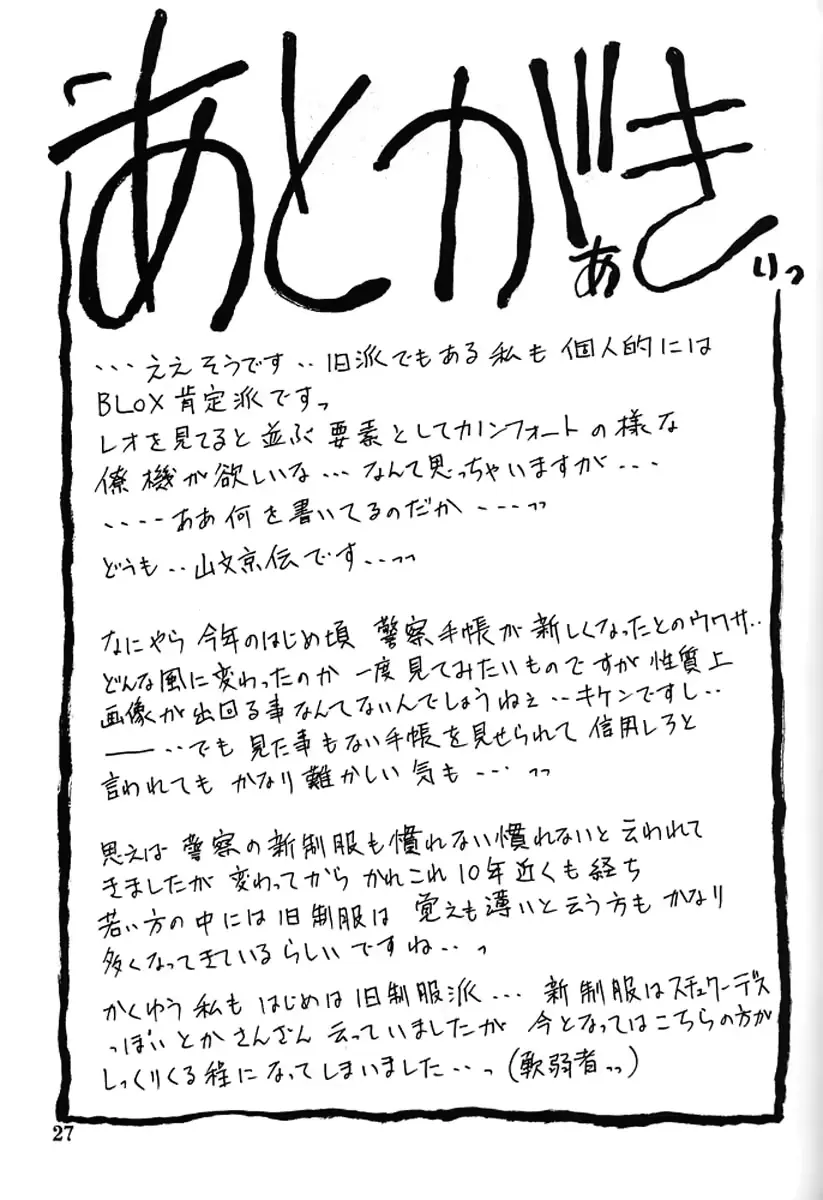 あとがき
ぁ
ぃっ
・・・ええそうです・・旧派でもある私も 個人的には
BLOX 肯定派ですっ
レオを見てると並ぶ要素としてカノンフォートの様な
僚機が欲しいな・・・なんて思っちゃいますが・・・
・・・・・ああ何を書いてるのだか・・・・っっ
どうも・・山文京伝です・・・っっ
なにやら 今年のはじめ頃 警察手帳が新しくなったとのウワサ・・
どんな風に変わったのか 一度見てみたいものですが 性質上
画像が出回る事なんてないんでしょうねぇ・・キケンですし・・
――・・でも 見た事もない手帳を見せられて 信用しろと
言われても かなり難かしい気も・・・っっ
思えば 警察の新制服も慣れない慣れないと云われて
きましたが 変わってから かれこれ10年近くも経ち
若い方の中には旧制服は 覚えも薄いと云う方も かなり
多くなってきているらしいですね・・っ
かくゆう私も はじめは旧制服派・・・ 新制服はスチュワーデス
っぽいとか さんざん 云っていましたが 今となってはこちらの方が
しっくりくる程になってしまいました・・っ（軟弱者っっ）
27